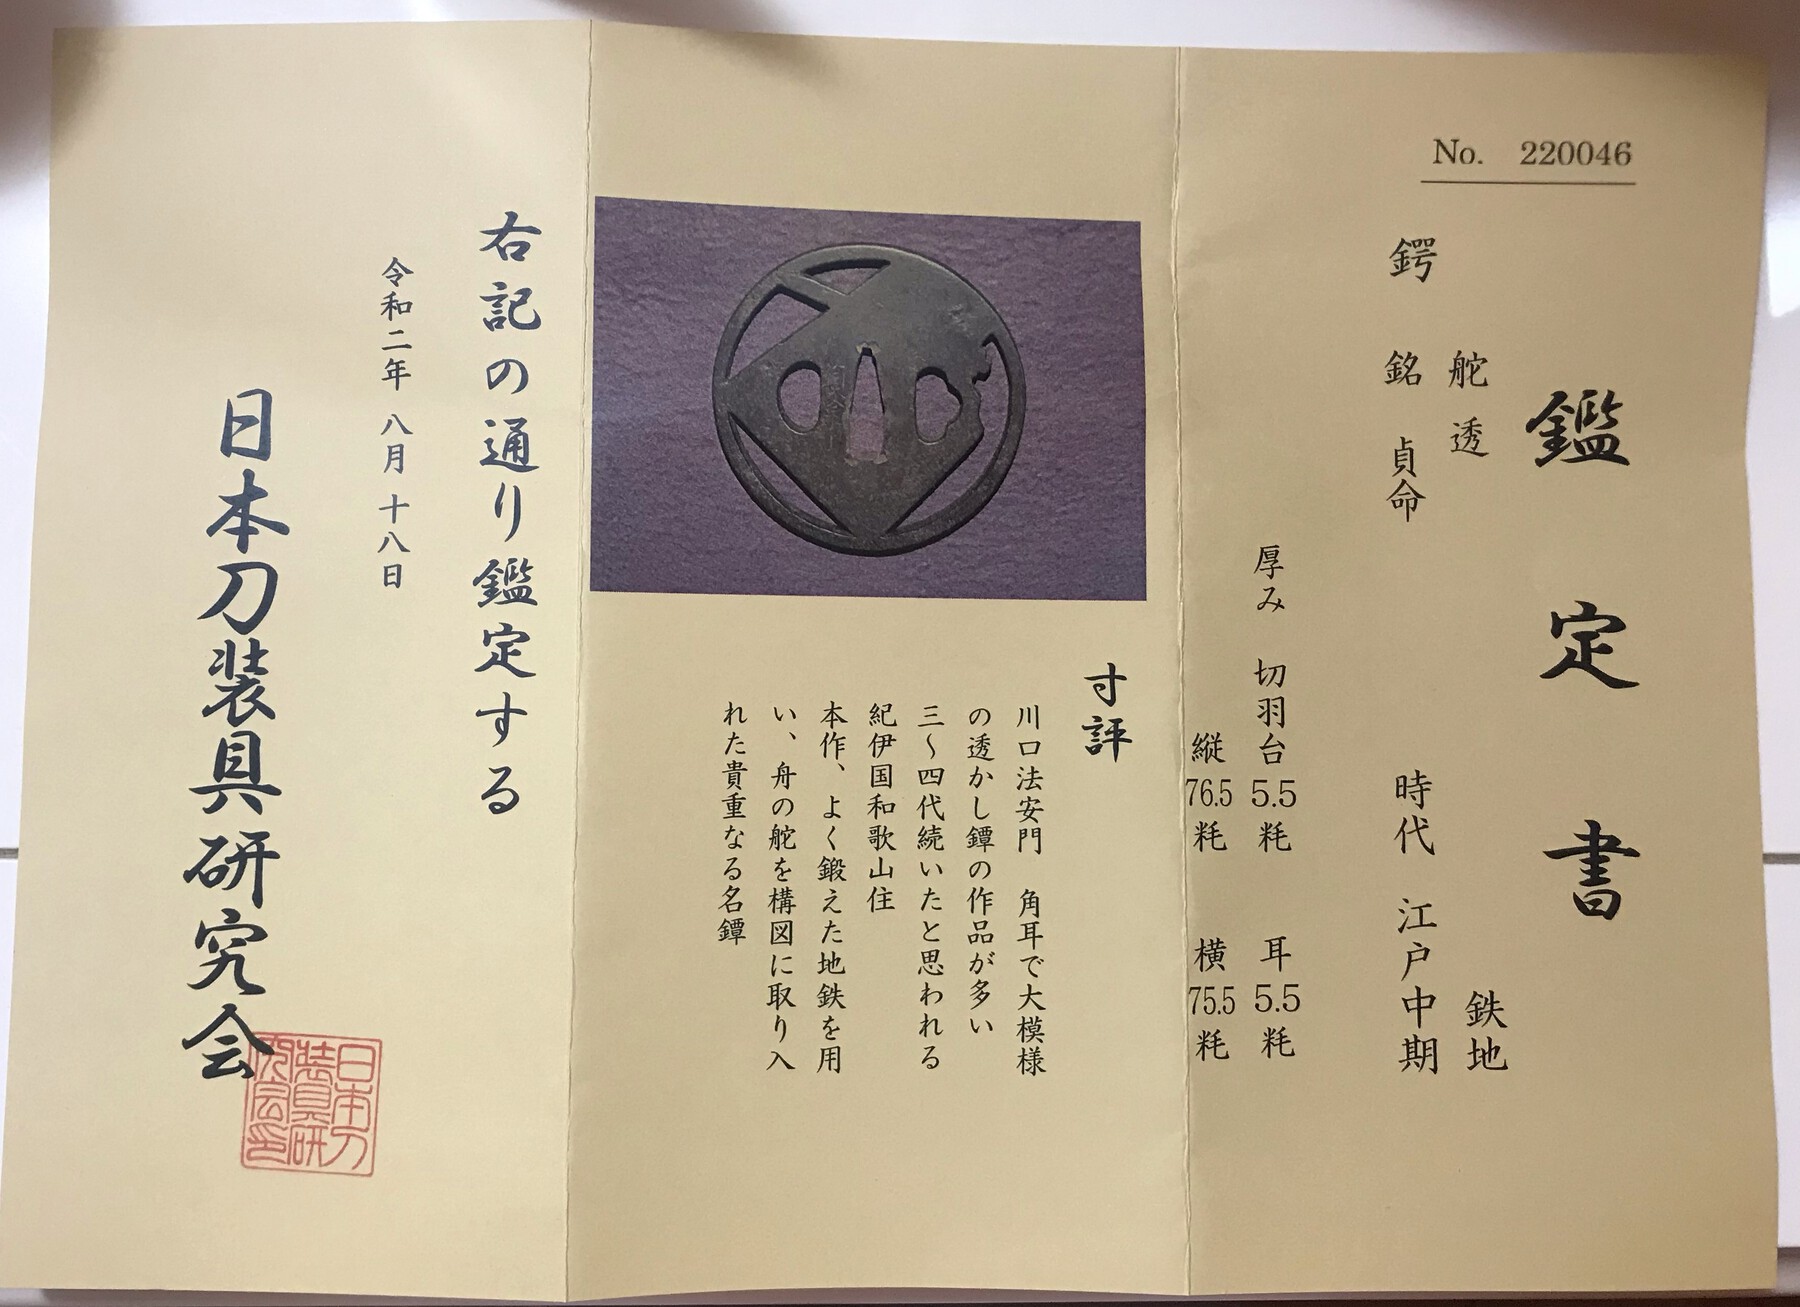 No. 220046
鑑定書
舵透 鉄地
鍔 銘 貞命 時代 江戸中期
厚み 切羽台 5.5 粍 耳 5.5 粍
縦 76.5 粍 横 75.5 粍
寸評
川口法安門 角耳で大模様
の透かし鐔の作品が多い
三〜四代続いたと思われる
紀伊国和歌山住
本作、よく鍛えた地鉄を用
い、舟の舵を構図に取り入
れた貴重なる名鐔
右記の通り鑑定する
令和二年 八月十八日
日本刀装具研究会
日本刀
装具研
究会印